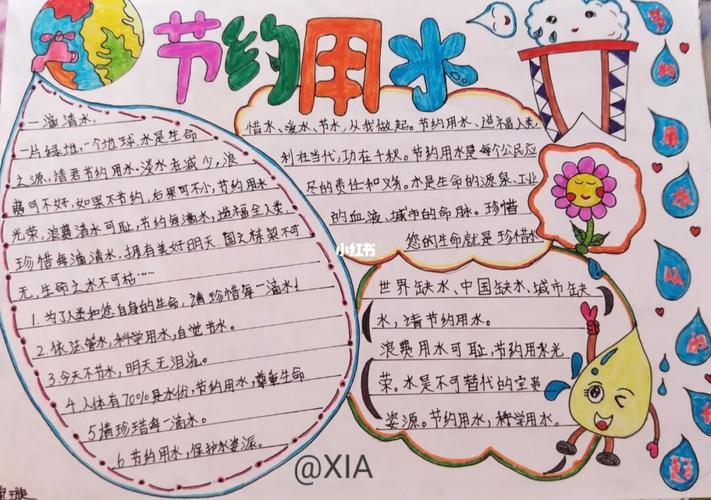 节约用水
一滴清水,
一片绿地,一个地球,水是生命
之源、请君节约用水。淡水在减少,浪
费可不好,如果不节约,后果可不小,节约用水
光荣,浪费清水可耻,节约每滴水,造福全人类,
珍惜每滴清水,拥有美好明天 国之栋梁不可
无,生命之水不可枯……
1.为了人类和您自身的生命,请珍惜每一滴水!
2.依法管水,科学用水,自觉节水。
3.今天不节水,明天无泪流。
4.人体有70%是水份,节约用水,尊重生命
5情珍惜每一滴水。
6节约用水,保护水姿源。
惜水、爱水、节水,从我做起。节约用水、造福人类,
利在当代,功在千秋。节约用水是每个公民应
尽的责任和义务。水是生命的源泉、工业
的血液、城市的命脉。珍惜
您的生命就是珍惜水
小红书
世界缺水、中国缺水、城市缺
水,请节约用水。
浪费用水可耻,节约用水光
荣。水是不可替代的宝贵
姿源。节约用水,科学用水。
节
约
用
水
从
我
做
起
@XIA